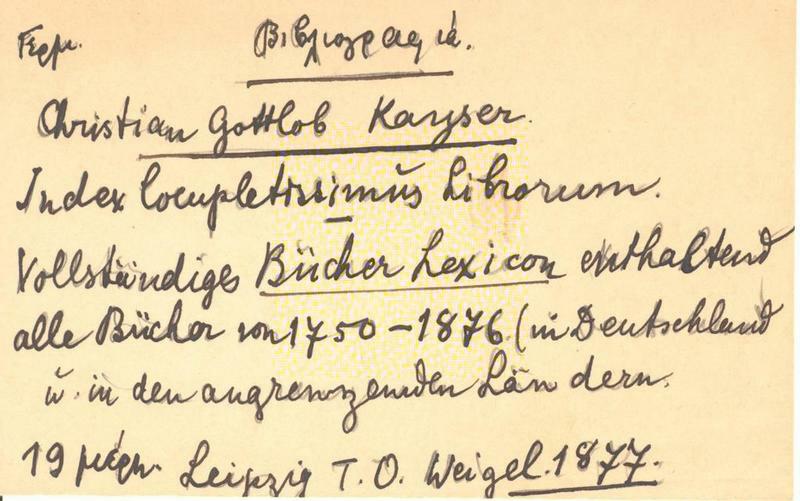 Γερμ. Βιβλιογραφιά.
Christian Gottlob Kayser.
Index locupletissimus Librorum.
Vollständiges Bücher Lexicon enthaltend
alle Bücher von 1750-1876 (in Deutschland
u. in den angrenzenden Ländern.
19 μέρη. Leipzig T. O. Weigel. 1877.